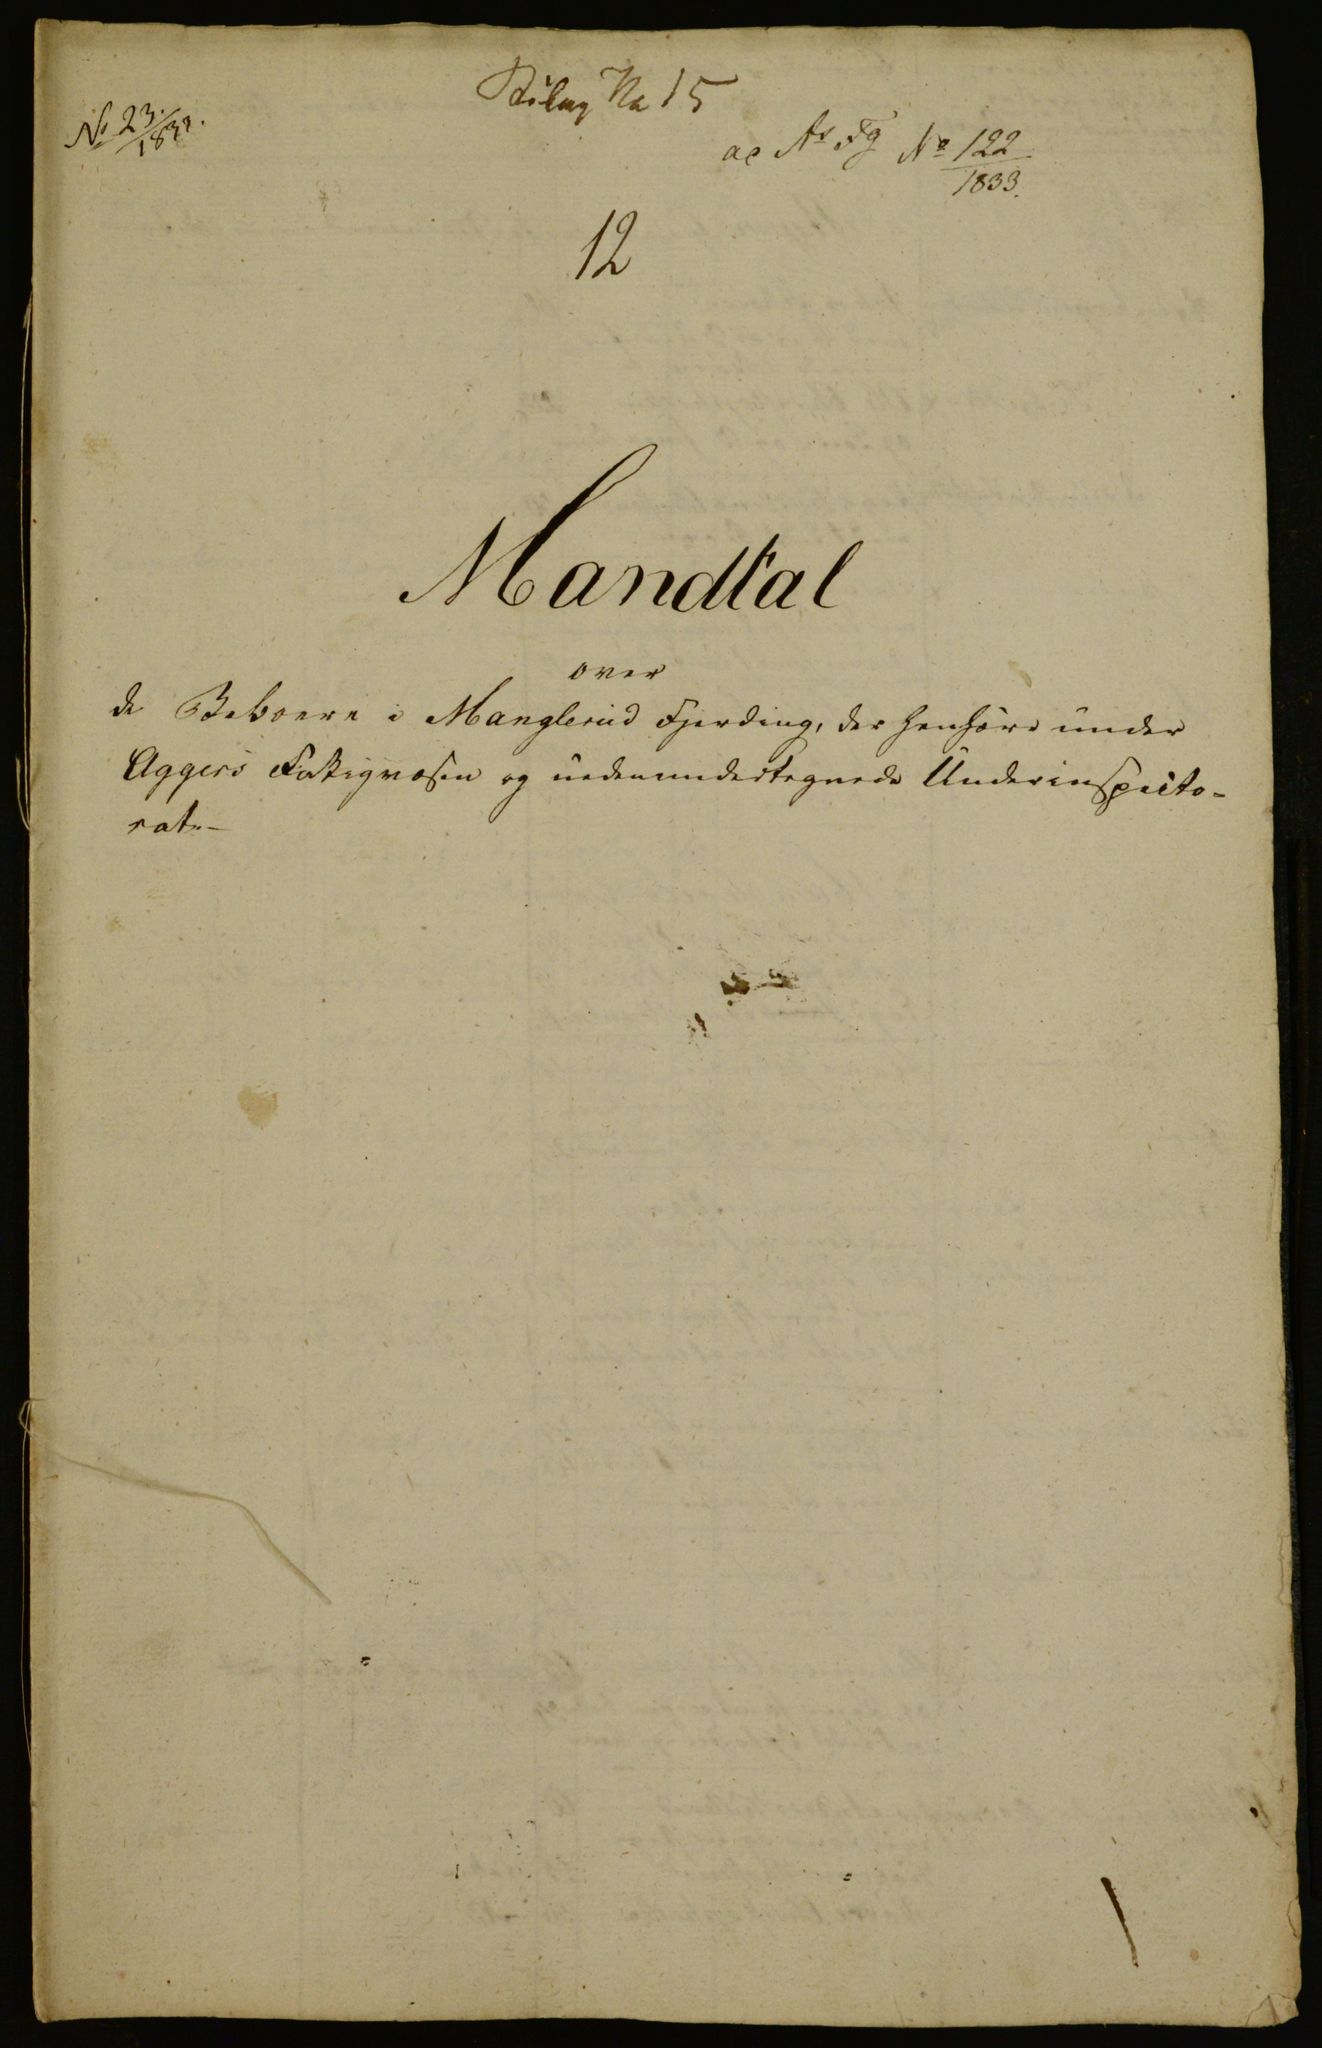 Bilag No 15
No 23/1833.
ac As Fg No 122/1833.
12
Mandtal
over
de Beboere i Manglerud Fjerding, der henhøre under
Aggers Fattigvæsen og nedenundertegnede Underinspecto-
rat.-